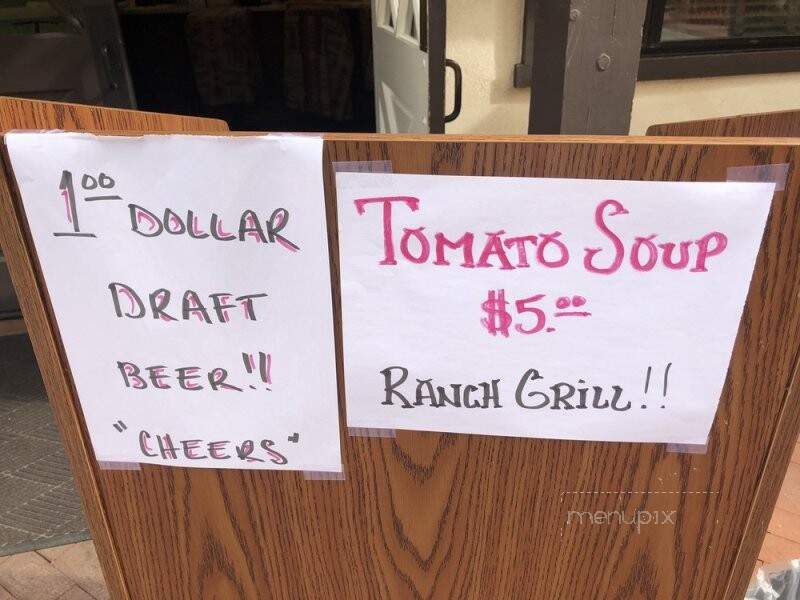 1.00 DOLLAR
DRAFT
BEER!!
"CHEERS"
TOMATO SOUP
$5.00
RANCH GRILL!!
menupix